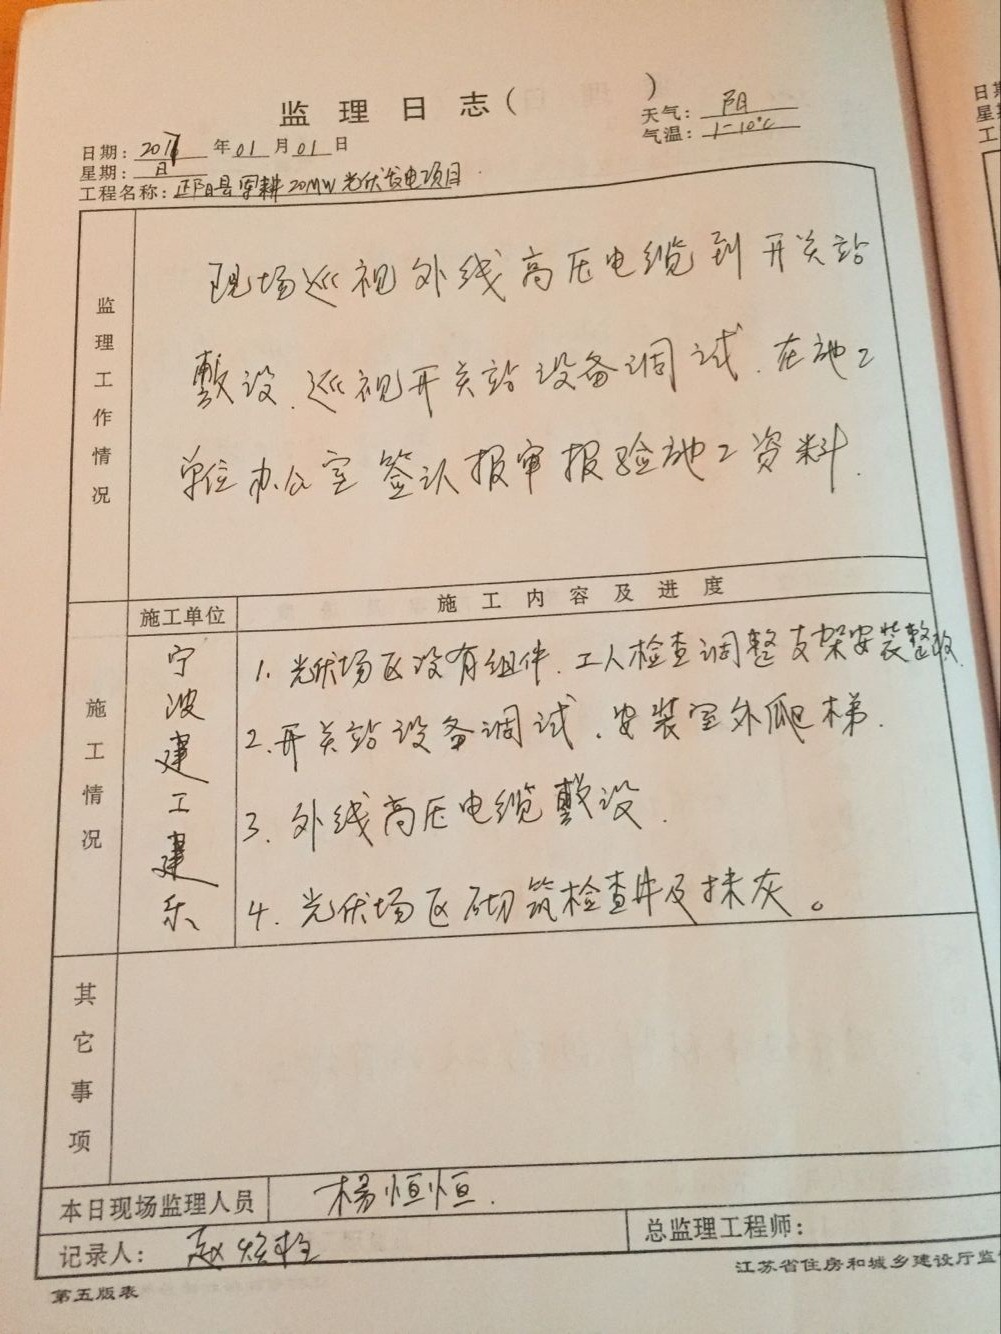 监理日志（　　）
天气：阴
日期：2017年01月01日
气温：1-10℃
星期：日
工程名称：正阳县军耕20MW光伏发电项目
监理工作情况
现场巡视外线高压电缆到开关站
敷设.巡视开关站设备调试.在施工
单位办公室签认报审报验施工资料.
施工单位
施工内容及进度
施工情况
宁波建工建乐
1.光伏场区没有组件.工人检查调整支架安装整改.
2.开关站设备调试.安装室外爬梯.
3.外线高压电缆敷设.
4.光伏场区砌筑检查井及抹灰。
其它事项
本日现场监理人员 杨恒恒.
记录人：赵
总监理工程师：
第五版表
江苏省住房和城乡建设厅监
日
星
工